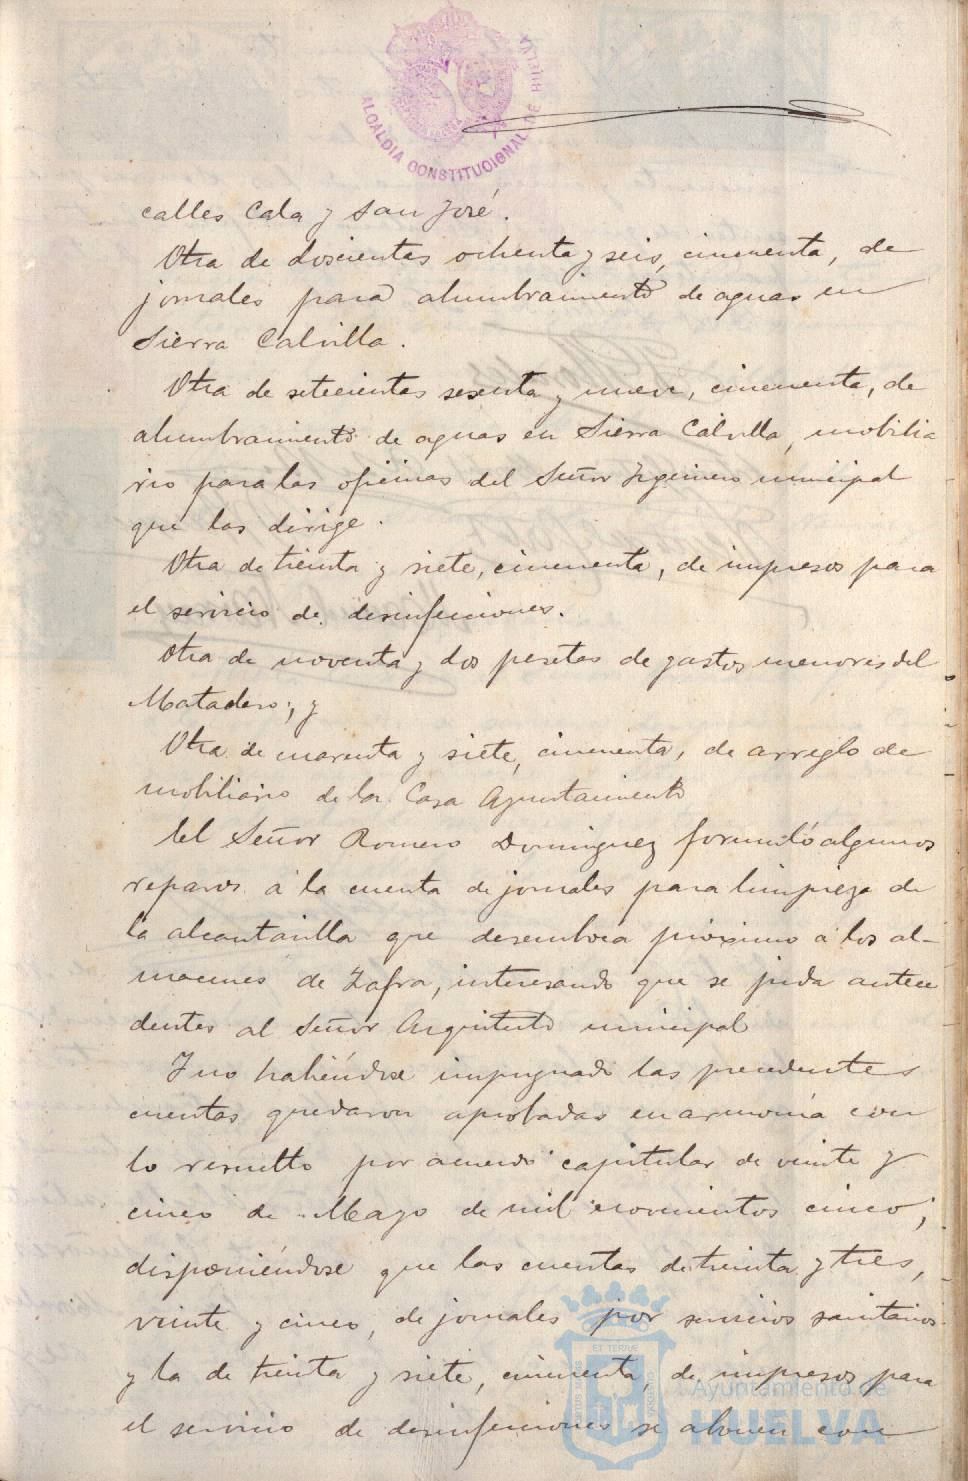 ALCALDIA CONSTITUCIONAL DE HUELVA
calles Cala y San José.
Otra de doscientas ochenta y seis, cincuenta, de
jornales para alumbramiento de aguas en
Sierra Calvilla.
Otra de setecientas sesenta y nueve, cincuenta, de
alumbramiento de aguas en Sierra Calvilla, mobilia-
rio para las oficinas del Señor Ingeniero municipal
que las dirige.
Otra de treinta y siete, cincuenta, de impresos para
el servicio de desinfecciones.
Otra de noventa y dos pesetas de gastos menores del
Matadero; y
Otra de cuarenta y siete, cincuenta, de arreglo de
mobiliario de la Casa Ayuntamiento
El Señor Romero Dominguez formuló algunos
reparos á la cuenta de jornales para limpieza de
la alcantarilla que desemboca próximo á los al-
macenes de Zafra, interesando que se pida antece
dentes al Señor Arquitecto municipal
Y no habiéndose impugnado las precedentes
cuentas quedaron aprobadas en armonía con
lo resuelto por acuerdo capitular de veinte y
cinco de Mayo de mil novecientos cinco;
disponiéndose que las cuentas de treinta y tres,
veinte y cinco, de jornales por servicios sanitarios
y la de treinta y siete, cincuenta, de impresos para
el servicio de desinfecciones se abonen con
Ayuntamiento de
HUELVA